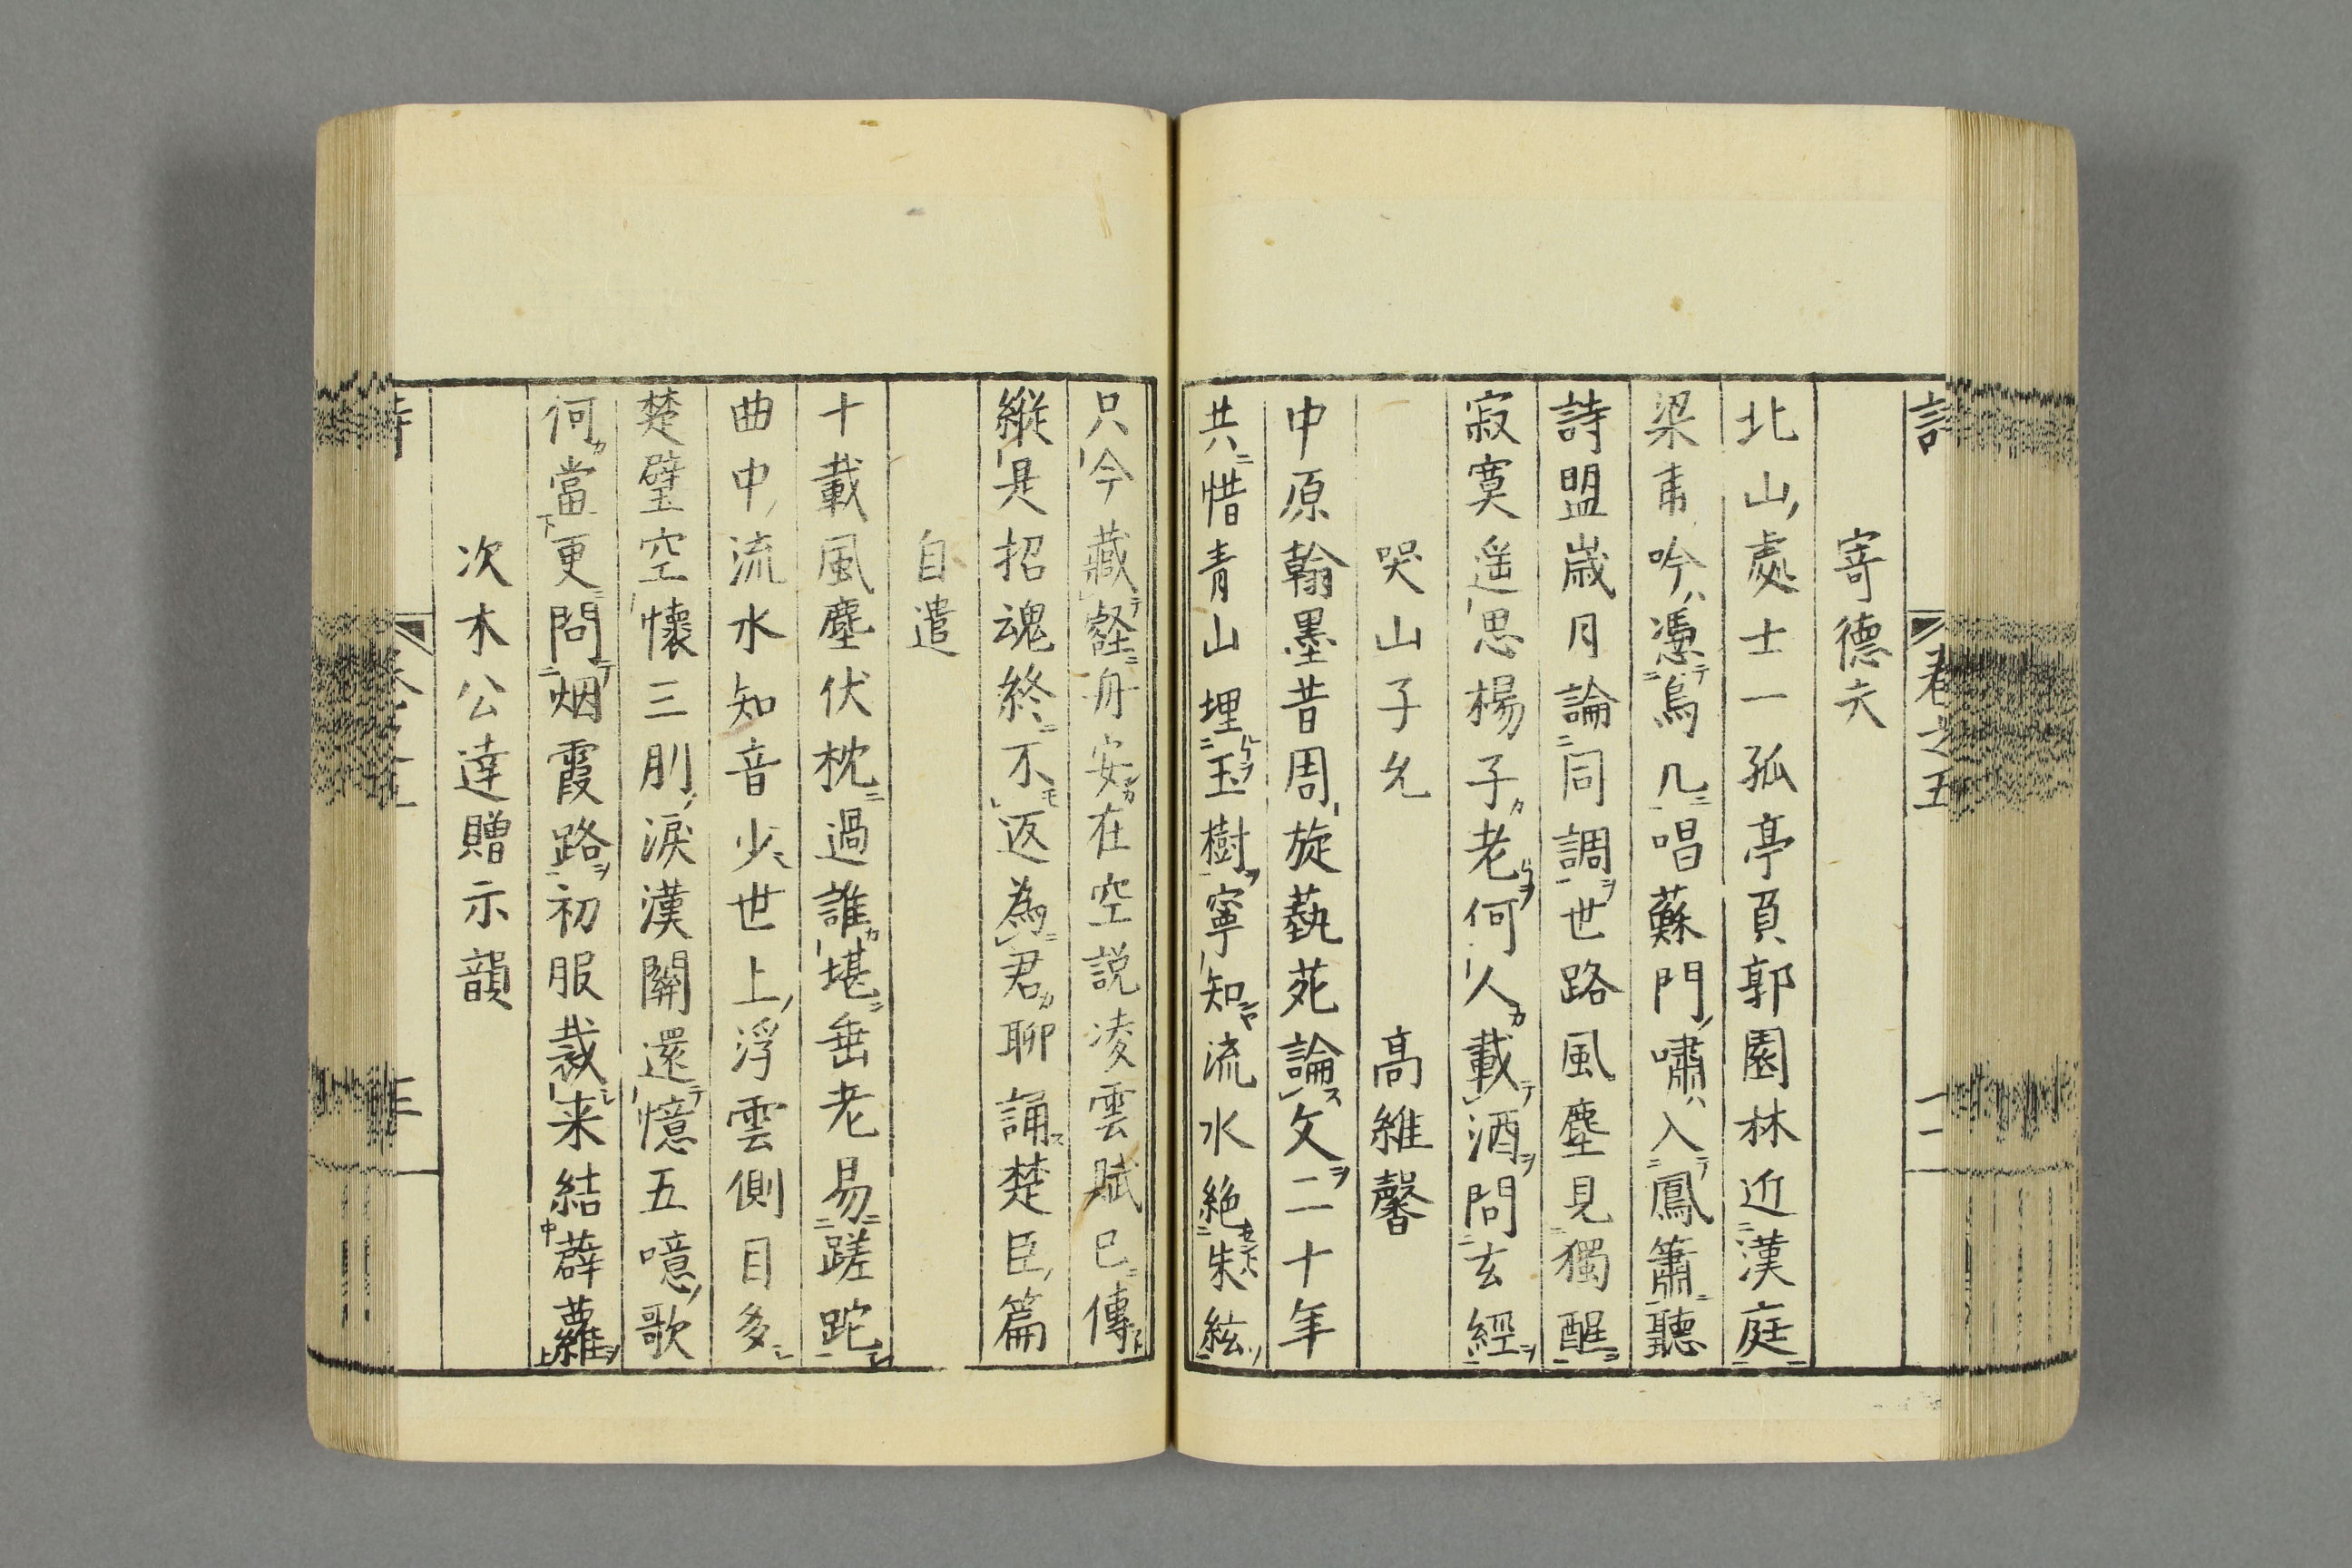 卷之五
寄德夫
北山處士一孤亭負郭園林近漢庭
梁甫吟憑烏几唱蘇門嘯入鳳簫聽
詩盟歲月論同調世路風塵見獨醒
寂寞遥思楊子老何人載酒問玄經
哭山子允 高維馨
中原翰墨昔周旋藝苑論文二十年
共惜青山埋玉樹寧知流水絶朱絃
只今藏壑舟安在空説凌雲賦已傳
縱是招魂終不返為君聊誦楚臣篇
自遣
十載風塵伏枕過誰堪垂老易蹉跎
曲中流水知音少世上浮雲側目多
楚璧空懷三刖淚漢關還憶五噫歌
何當更問烟霞路初服裁来結薜蘿
次木公達贈示韻